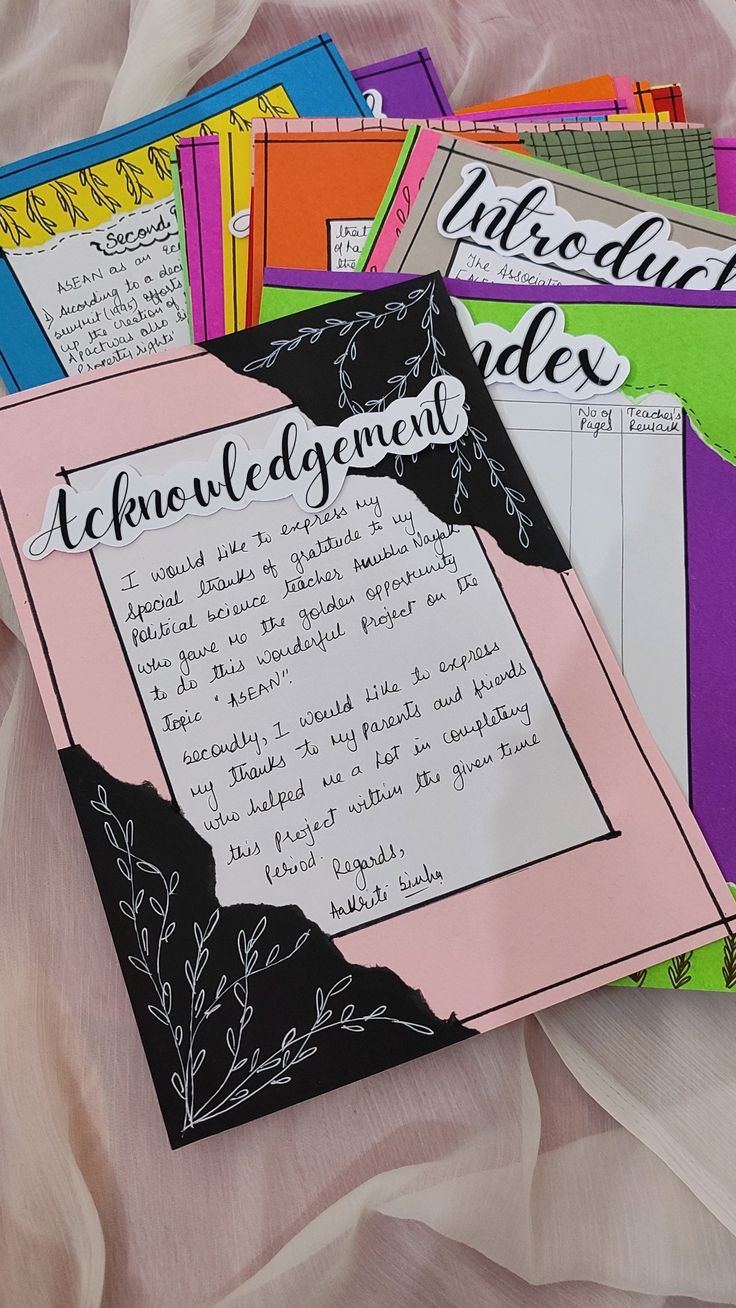 Second
ASEAN as an Ec
1) According to a deci
summit (1995) efforts
up the creation of
Apact was also
Property rights
that
of ha
the
Introduct
The Associatio
Index
No of
Pages
Teacher's
Remark
Acknowledgement
I would like to express my
special thanks of gratitude to my
Political science teacher Anubha Nayak
who gave me the golden opportunity
to do this wonderful project on the
topic "ASEAN".
Secondly, I would like to express
my thanks to my parents and friends
who helped me a lot in completing
this project within the given time
Period.
Regards,
Aakriti Sinha